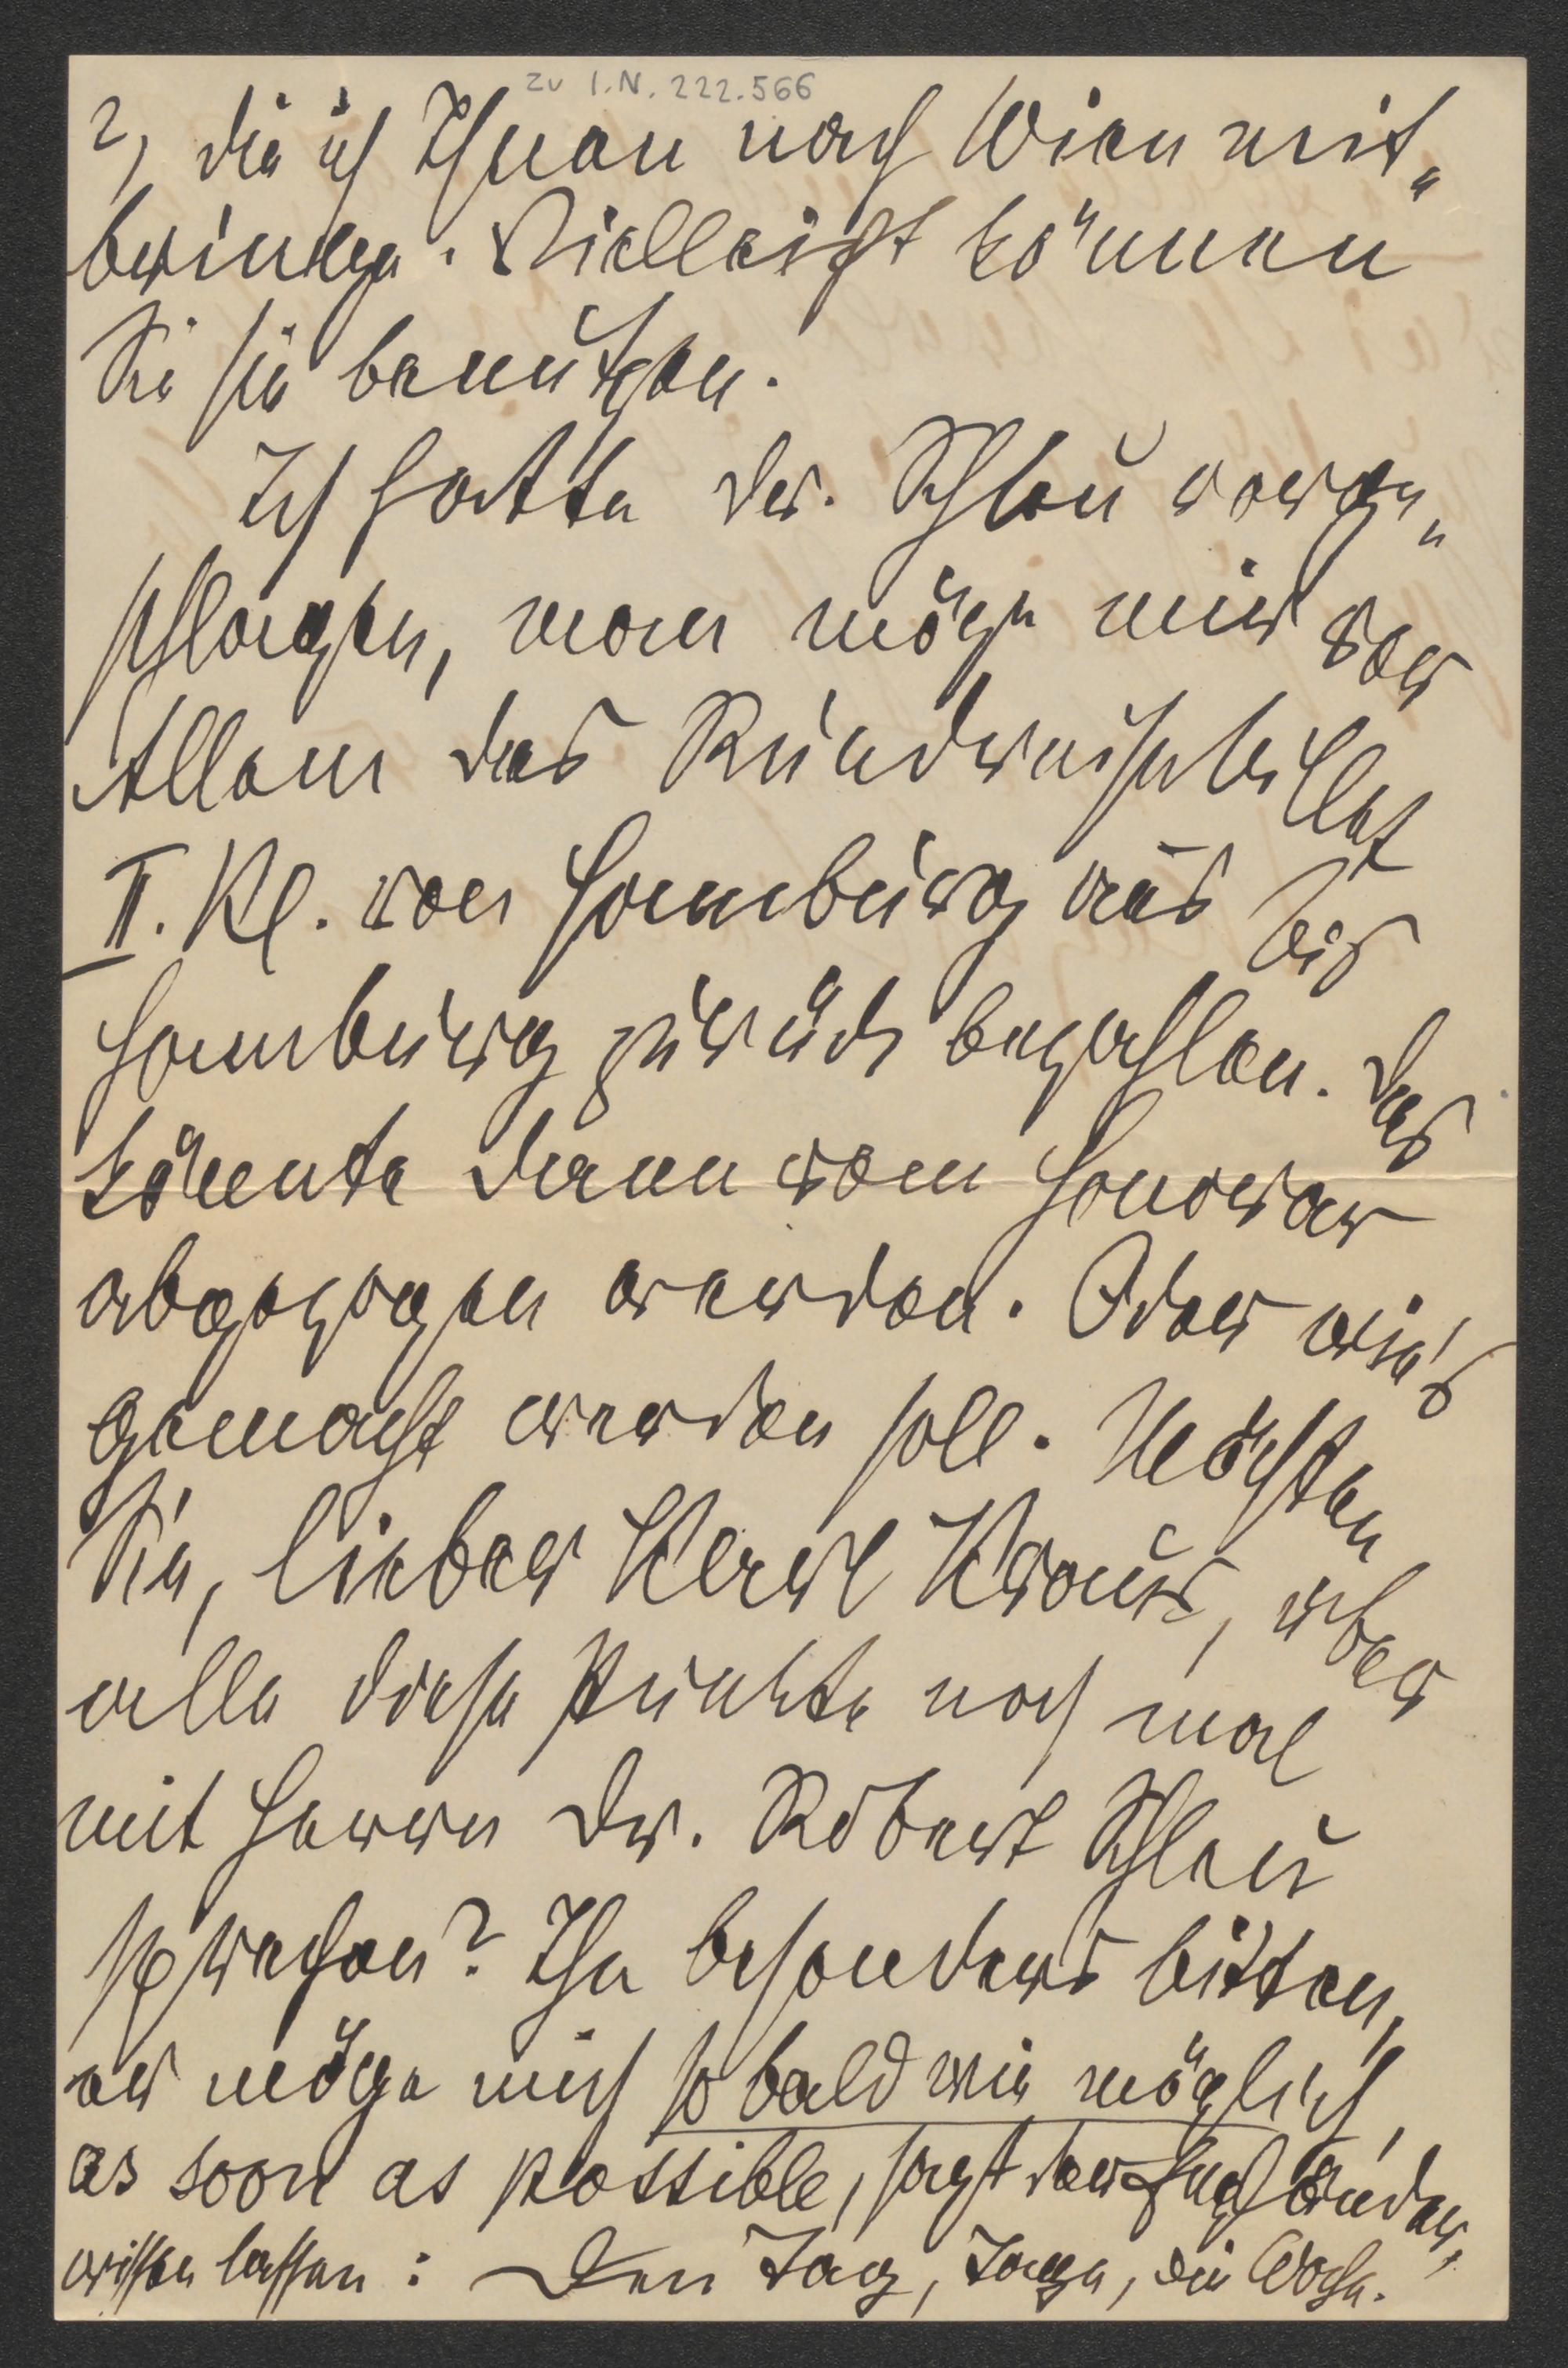 zu I.N. 222.566
2, die ich Ihnen nach Wien mit„
bringe. Vielleicht können
Sie sie benutzen.
Ich hatte Dr. Scheu vorge„
schlagen, man möge mir vor
Allem das Rundreisebillet
II. Kl. von Hamburg aus bis
Hamburg zurück bezahlen. Das
könnte dann vom Honorar
abgezogen werden. Oder wie's
gemacht werden soll. Möchten
Sie, lieber Karl Kraus, über
alle diese Punkte noch mal
mit Herrn Dr. Robert Scheu
sprechen? Ihn besonders bitten,
er möge mich so bald wie möglich,
as soon as possible, sagt der Engländer,
wissen lassen: Den Tag, Tage, die Woche.